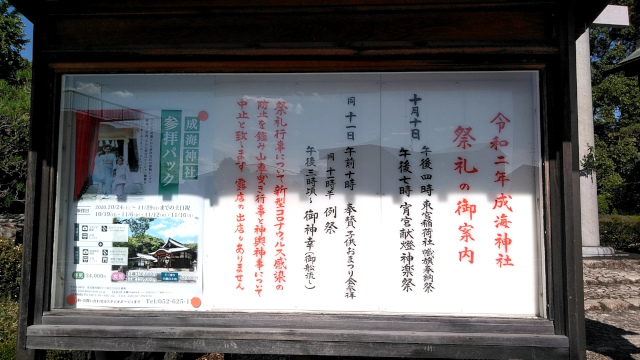 令和二年成海神社
祭礼の御案内
十月十日 午後四時 東宮稲荷社 幟旗奉納祭
午後七時 宵宮献燈神楽祭
同十一日 午前十時 奉賛子供おまつり会合祥
同十一時半 例祭
午後三時頃〜御神幸(御舩流し)
祭礼行事について新型コロナウルス感染の
防止を鑑み山車曳き行事と神輿神事について
中止と致します 露店の出店もありません
成海神社
参拝パック
2020.10/24(土)〜11/29(日)までの土日祝
Tel:052-625-